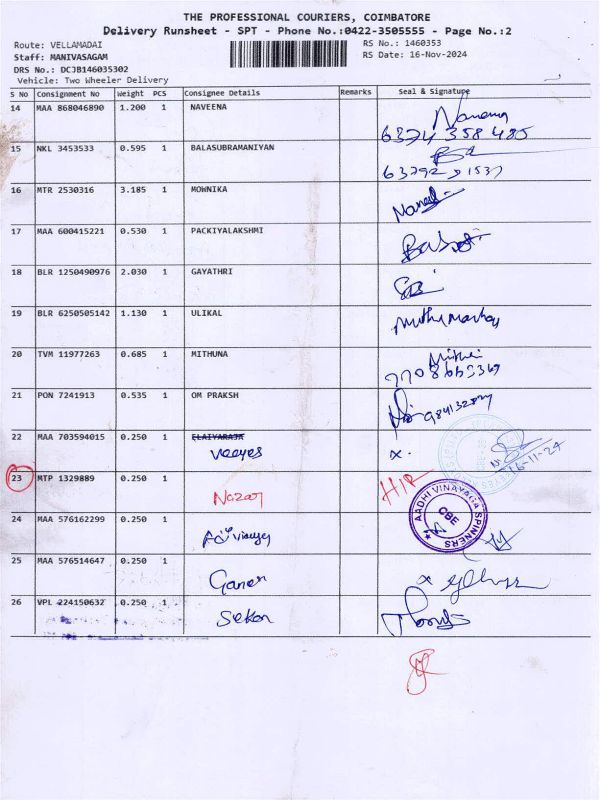 THE PROFESSIONAL COURIERS, COIMBATORE
Delivery Runsheet - SPT - Phone No.:0422-3505555 - Page No.:2
Route: VELLAMADAI
RS No.: 1460353
Staff: MANIVASAGAM
RS Date: 16-Nov-2024
DRS No.: DCJB146035302
Vehicle: Two Wheeler Delivery
S No Consignment No Weight PCS Consignee Details Remarks Seal & Signature
14 MAA 868046890 1.200 1 NAVEENA
6374 358 485
15 NKL 3453533 0.595 1 BALASUBRAMANIYAN
16 MTR 2530316 3.185 1 MOWNIKA
17 MAA 600415221 0.530 1 PACKIYALAKSHMI
18 BLR 1250490976 2.030 1 GAYATHRI
19 BLR 6250505142 1.130 1 ULIKAL
20 TVM 11977263 0.685 1 MITHUNA
21 PON 7241913 0.535 1 OM PRAKSH
22 MAA 703594015 0.250 1 ELAIYARAJA
Veeyes x.
16-11-24
23 MTP 1329889 0.250 1
AADHI VINAYAGA SPINNERS
CBE
24 MAA 576162299 0.250 1
25 MAA 576514647 0.250 1
Ganesn x
26 VPL 224150632 0.250 1
Sekar